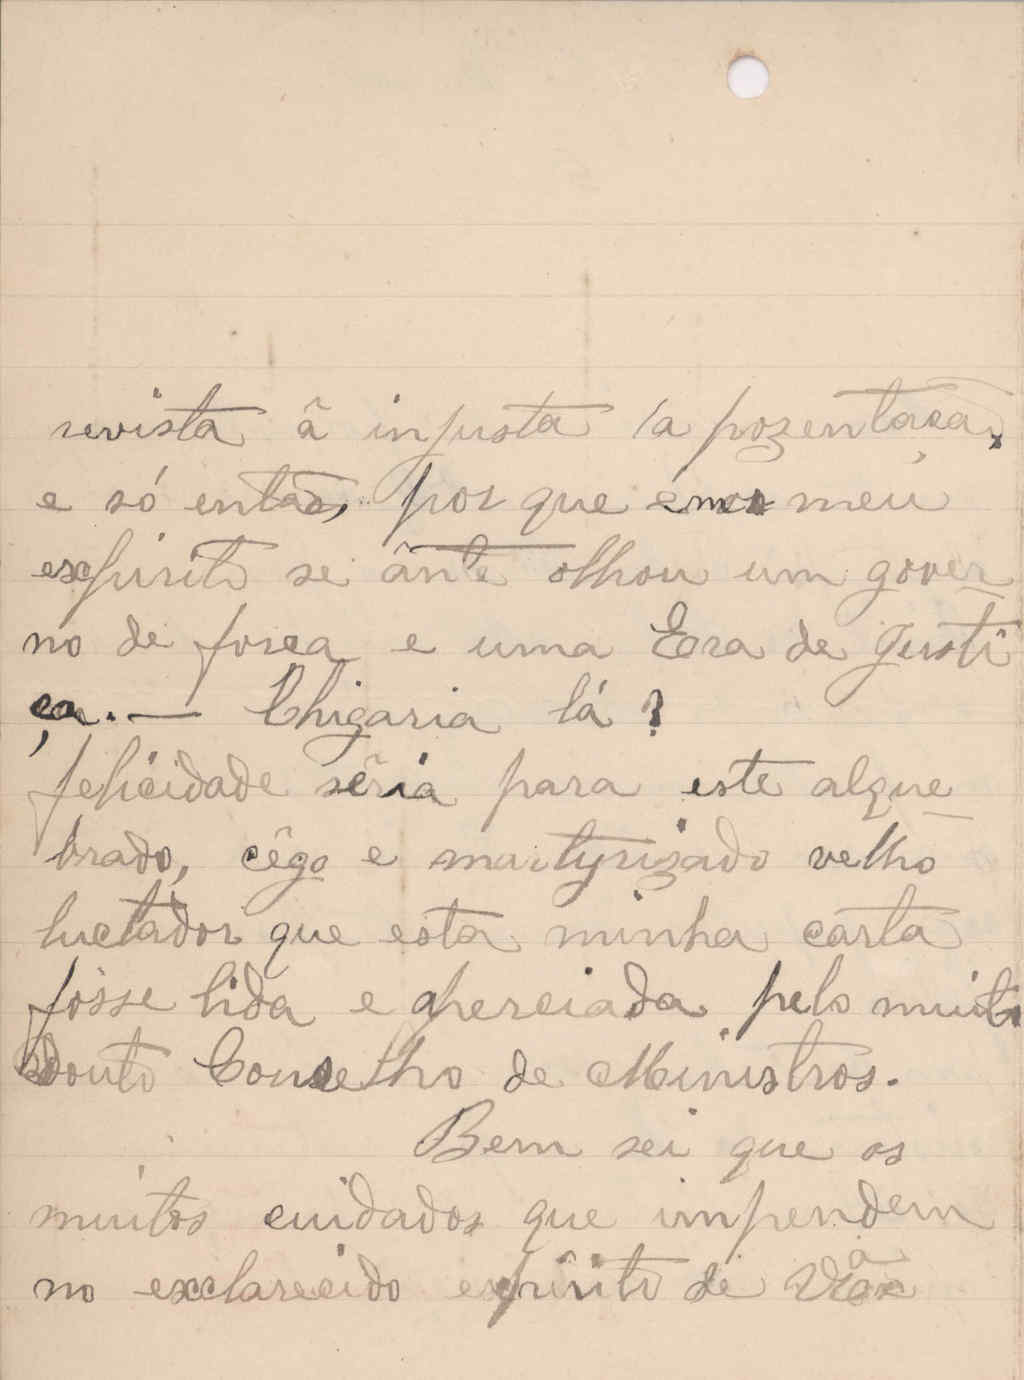 revista â injusta /a pozentaçao,
e só então, por que é no meu
expirito se ânte olhou um gover
no de força e uma Era de Justi
ça. — Chigaria lá?
felicidade sêria para este alque
brado, cêgo e martyrizado velho
luctador que esta minha carta
fôsse lida e aperciada pelo muito
douto Conselho de Ministros.
Bem sei que os
muitos cuidados que impendem
no exclarecido expirito de